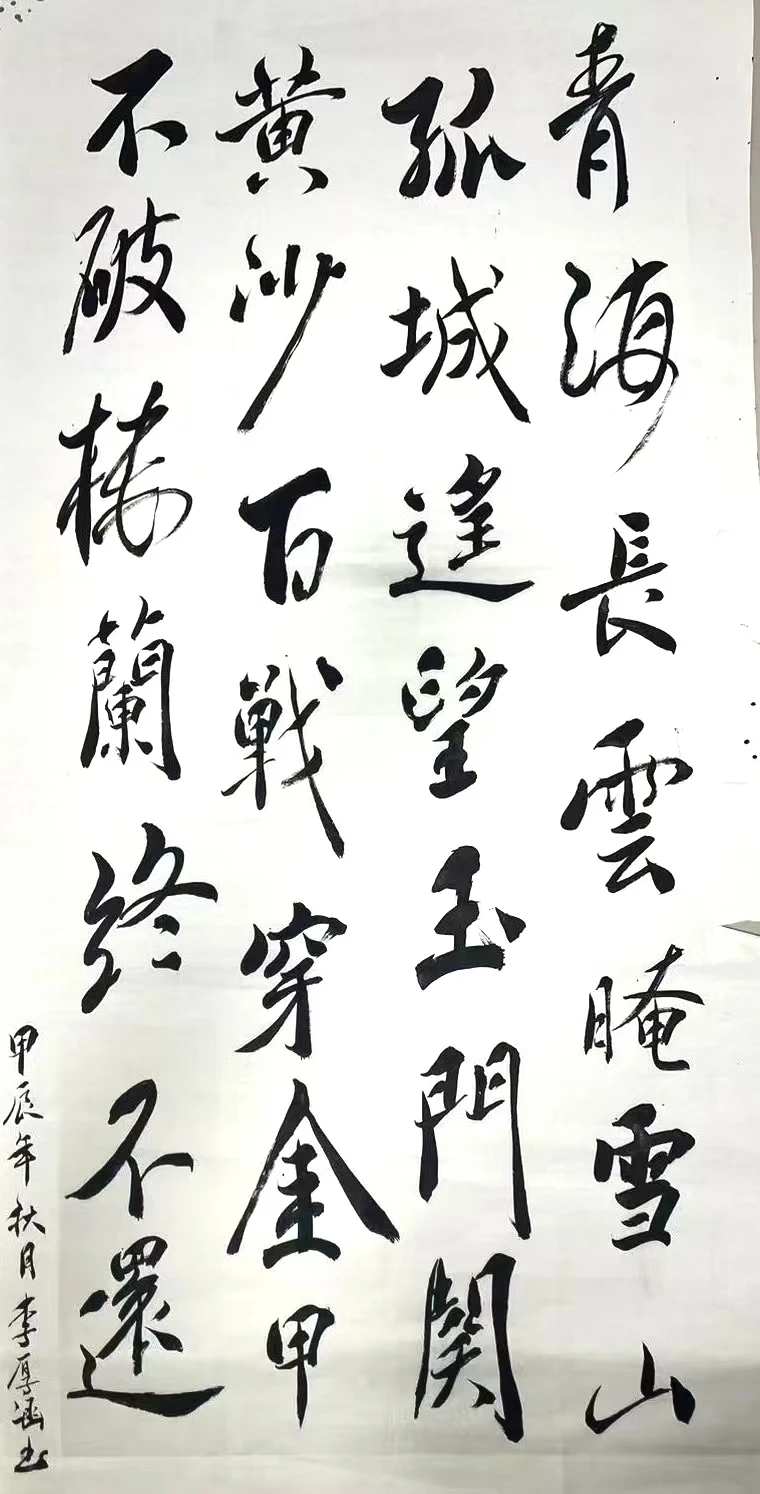 青海長雲腌雪山
孤城遥望玉門関
黄沙百戦穿金甲
不破楼蘭終不還
甲辰年秋月李厚涵书